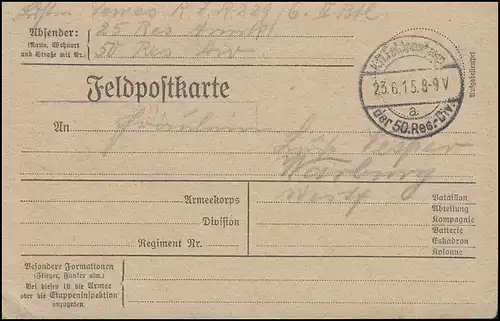 R. J. R. 229 6.
Absender: 25 Res
(Name, Wohnort
und Straße mit Nr.) 50 Res Div
K.D. Feldpostexp.
23.6.15.8-9V
a
der 50. Res.-Div.
Feldpostkarte
An Fräulein
Warburg
Westf
Armeekorps
Division
Regiment Nr.
Bataillon
Abteilung
Kompagnie
Batterie
Eskadron
Kolonne
Besondere Formationen
(Flieger, Funker usw.)
Bei diesen ist die Armee
oder die Etappeninspektion
anzugeben.